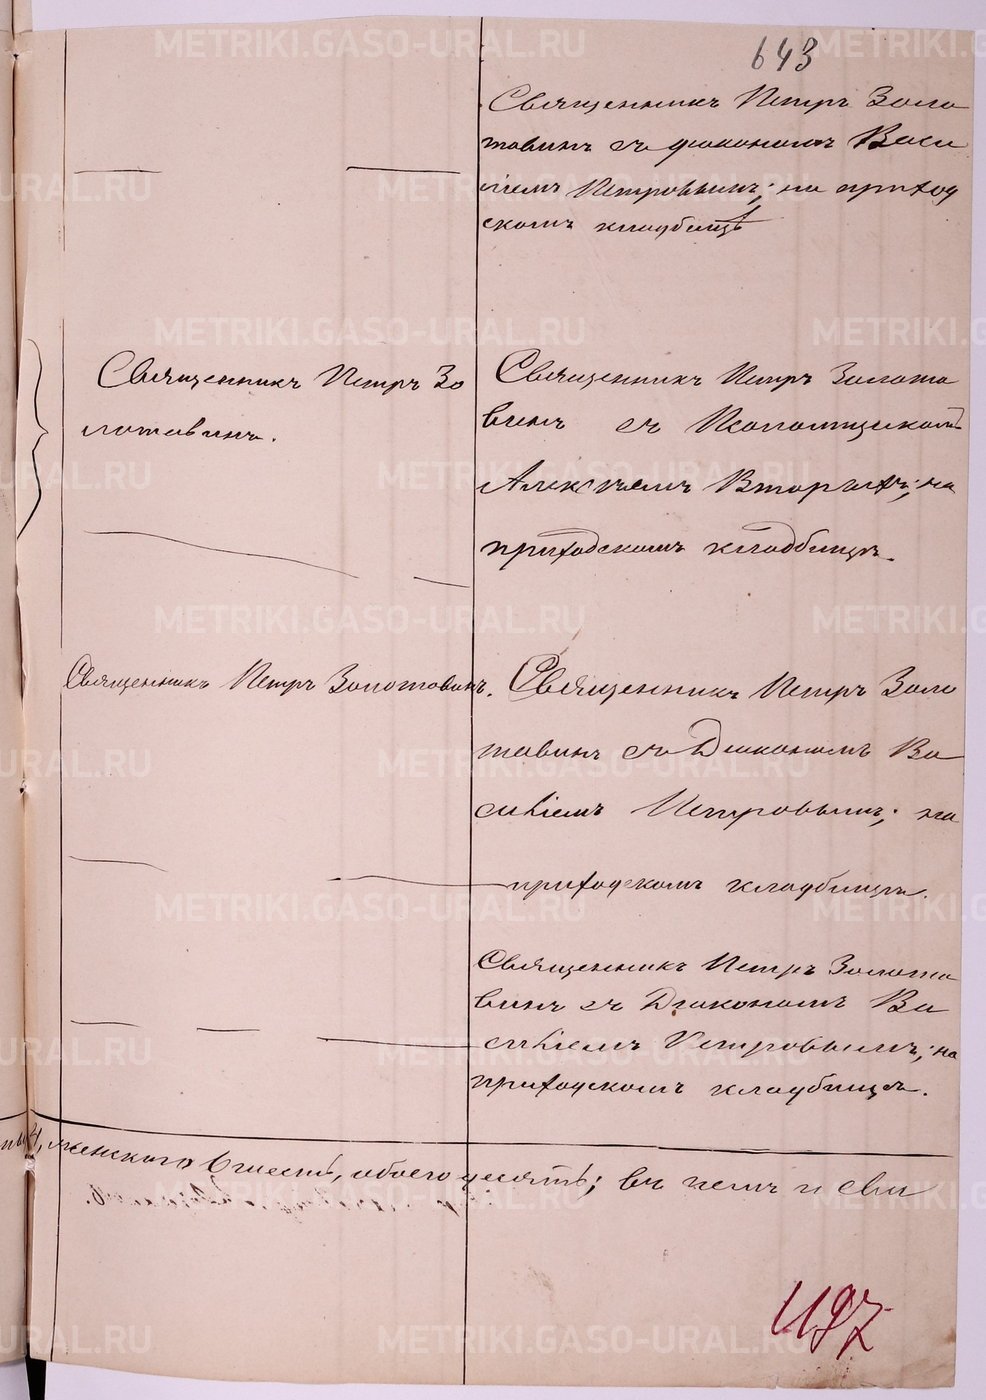 643
Священникъ Петръ Золо
товинъ съ диакономъ Васи
ліемъ Петровымъ; на приход
скомъ кладбищѣ
Священникъ Петръ Зо
лотовинъ.
Священникъ Петръ Золото
винъ съ Псаломщикомъ
Алексѣемъ Вторыхъ; на
приходскомъ кладбищѣ.
Священникъ Петръ Золотовинъ.
Священникъ Петръ Золо
товинъ съ Диакономъ Ва
силіемъ Петровымъ; на
приходскомъ кладбищѣ.
Священникъ Петръ Золото
винъ съ Диакономъ Ва
силіемъ Петровымъ; на
приходскомъ кладбищѣ.
4, женскаго 6 шесть, обоего десять; въ чемъ и сви
METRIKI.GASO-URAL.RU